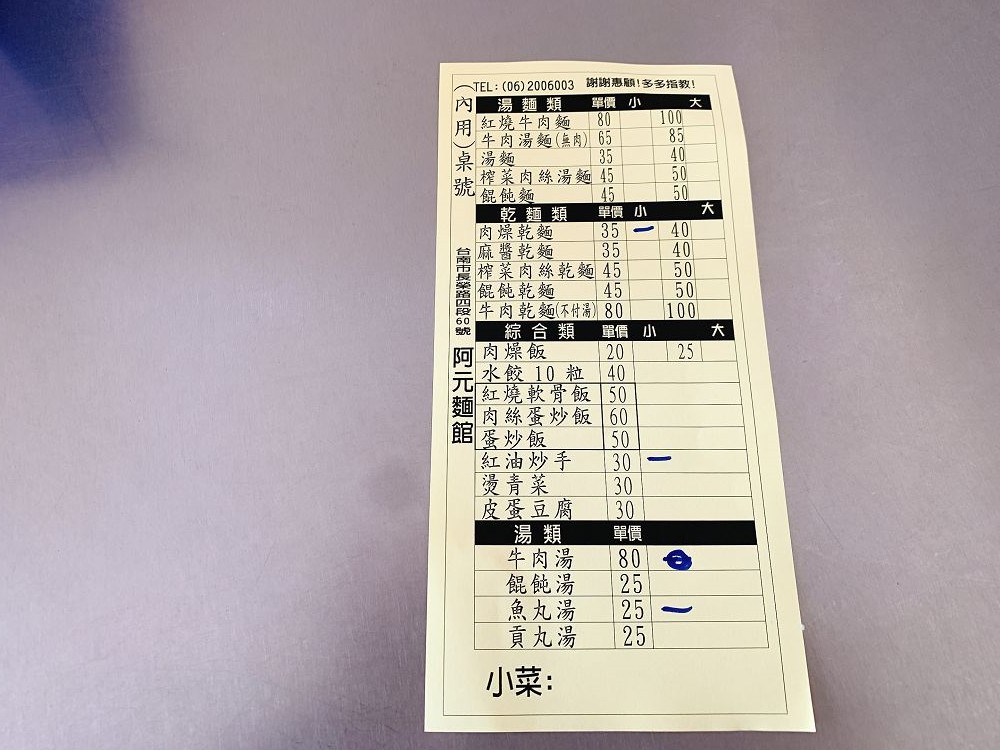 TEL:(06)2006003 謝謝惠顧!多多指教!
(內用)桌號
台南市長榮路四段60號
阿元麵館
湯麵類 單價 小 大
紅燒牛肉麵 80 100
牛肉湯麵(無肉) 65 85
湯麵 35 40
榨菜肉絲湯麵 45 50
餛飩麵 45 50
乾麵類 單價 小 大
肉燥乾麵 35 一 40
麻醬乾麵 35 40
榨菜肉絲乾麵 45 50
餛飩乾麵 45 50
牛肉乾麵(不付湯) 80 100
綜合類 單價 小 大
肉燥飯 20 25
水餃10粒 40
紅燒軟骨飯 50
肉絲蛋炒飯 60
蛋炒飯 50
紅油炒手 30 一
燙青菜 30
皮蛋豆腐 30
湯類 單價
牛肉湯 80
餛飩湯 25
魚丸湯 25 一
貢丸湯 25
小菜: